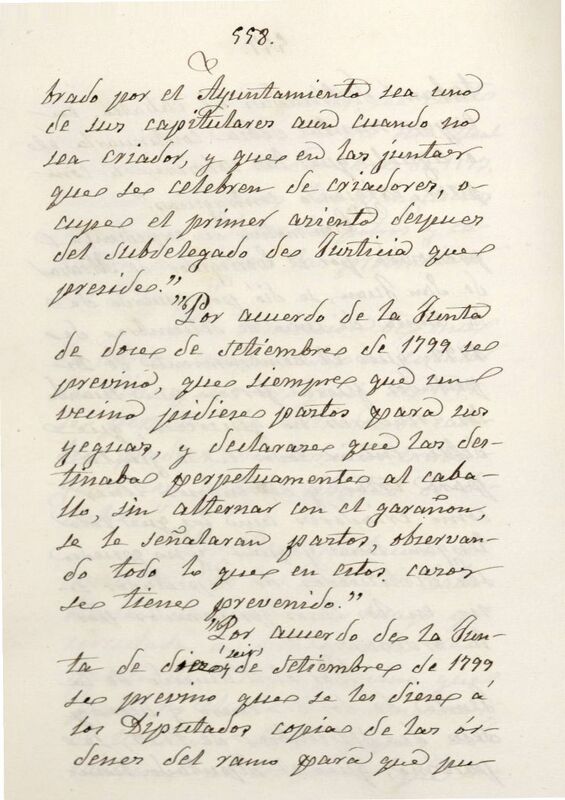 558.
brado por el Ayuntamiento sea uno
de sus capitulares aun cuando no
sea criador, y que en las juntas
que se celebren de criadores, o-
cupe el primer asiento despues
del subdelegado de Justicia que
preside."
"Por acuerdo de la Junta
de doce de Setiembre de 1799 se
previno, que siempre que un
vecino pidiese pastos para sus
yeguas, y declarase que las des-
tinaba perpetuamente al caba-
llo, sin alternar con el garañon,
se le señalaran pastos, observan-
do todo lo que en estos casos
se tiene prevenido."
"Por acuerdo de la Jun-
ta de diez y seis de Setiembre de 1799
se previno que se les diese á
los Diputados copia de las ór-
denes del ramo para que pu-